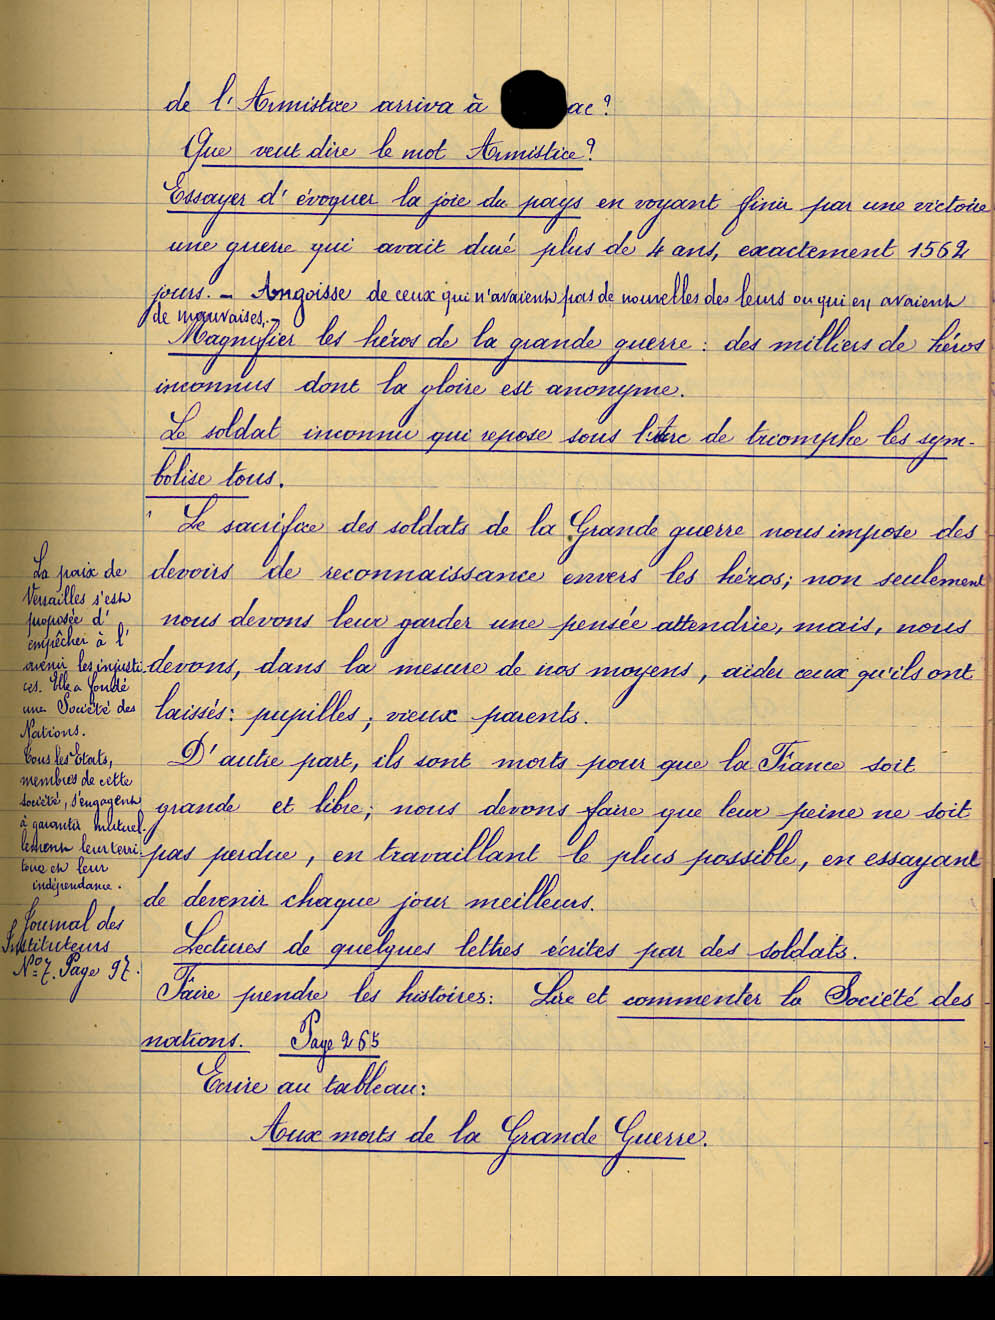 de l'Armistice arriva à ac ?
Que veut dire le mot Armistice ?
Essayer d'évoquer la joie du pays en voyant finir par une victoire
une guerre qui avait duré plus de 4 ans, exactement 1562
jours. - Angoisse de ceux qui n'avaient pas de nouvelles des leurs ou qui en avaient
de mauvaises. -
Magnifier les héros de la grande guerre : des milliers de héros
inconnus dont la gloire est anonyme.
Le soldat inconnu qui repose sous l'Arc de triomphe les sym-
bolise tous.
Le sacrifice des soldats de la Grande guerre nous impose des
devoirs de reconnaissance envers les héros ; non seulement
nous devons leur garder une pensée attendrie, mais, nous
devons, dans la mesure de nos moyens, aider ceux qu'ils ont
laissés : pupilles ; vieux parents.
D'autre part, ils sont morts pour que la France soit
grande et libre ; nous devons faire que leur peine ne soit
pas perdue, en travaillant le plus possible, en essayant
de devenir chaque jour meilleurs.
Lectures de quelques lettres écrites par des soldats.
Faire prendre les histoires : Lire et commenter la Société des
nations. Page 265
Ecrire au tableau :
Aux morts de la Grande Guerre.
La paix de
Versailles s'est
proposée d'
empêcher à l'
avenir les injusti-
ces. Elle a fondé
une Société des
Nations.
Tous les Etats,
membres de cette
société, s'engagent
à garantir mutuel-
lement leur terri-
toire et leur
indépendance.
Journal des
Instituteurs
N° 7. Page 97.